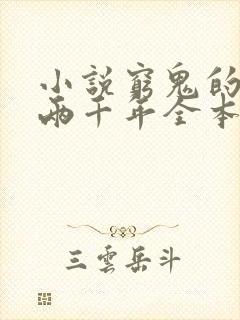 小說窮鬼的
兩千年全本
三雲岳斗